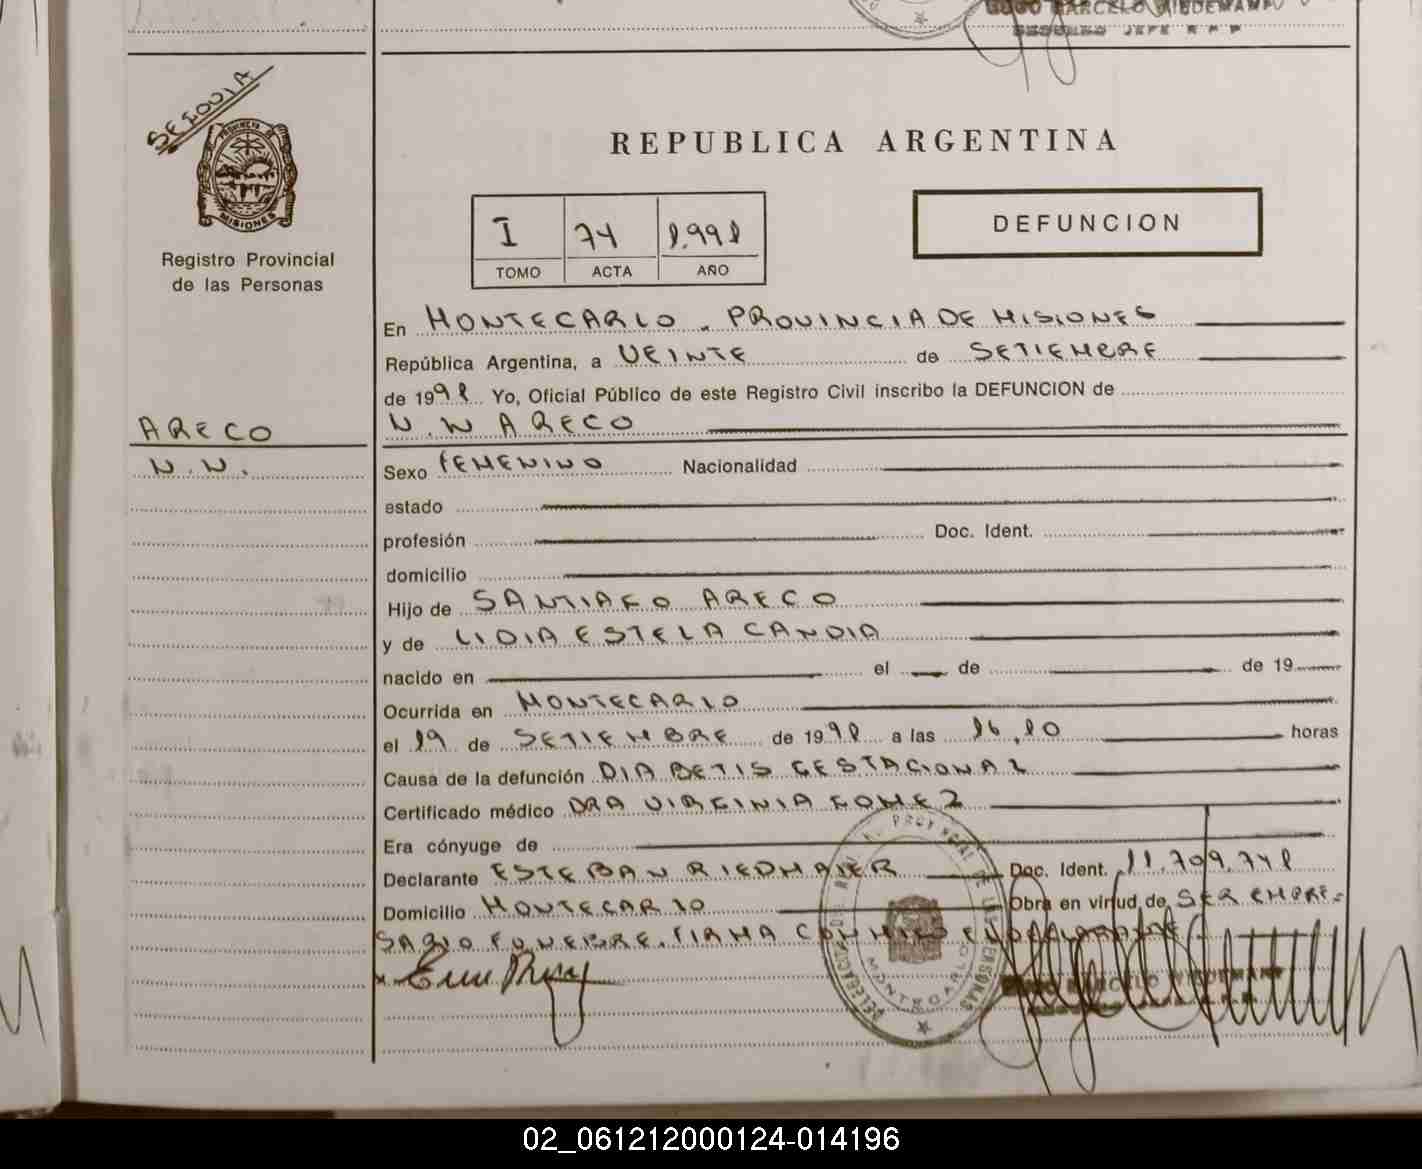 HUGO MARCELO WIEDEMANN
SEGUNDO JEFE R P P
SEQUIA
PROVINCIA DE
MISIONES
Registro Provincial
de las Personas
REPUBLICA ARGENTINA
I 74 1.991
TOMO ACTA AÑO
DEFUNCION
En MONTECARLO. PROVINCIA DE MISIONES
República Argentina, a VEINTE de SETIEMBRE
de 1991 Yo, Oficial Público de este Registro Civil inscribo la DEFUNCION de
ARECO
N.N ARECO
N.N.
Sexo FEMENINO Nacionalidad
estado
profesión Doc. Ident.
domicilio
Hijo de SANTIAGO ARECO
y de LIDIA ESTELA CANDIA
nacido en el de de 19
Ocurrida en MONTECARLO
el 19 de SETIEMBRE de 1991 a las 16,10 horas
Causa de la defunción DIABETIS GESTACIONAL
Certificado médico DRA VIRGINIA GOMEZ
Era cónyuge de
Declarante ESTEBAN RIEDMAIER Doc. Ident. 11.709.741
Domicilio MONTECARLO Obra en virtud de SER EMPRE=
SARIO FUNEBRE. FIRMA CONMIGO EL DECLARANTE
PROVINCIAL DE LAS PERSONAS
DELEGACION
MONTECARLO
HUGO MARCELO WIEDEMANN
02_061212000124-014196